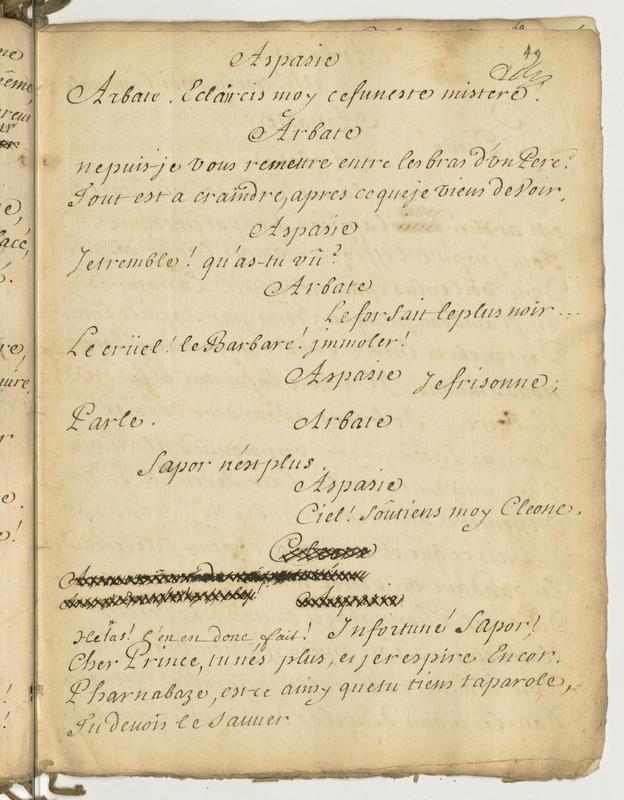 49
Aspasie
Arbate. Eclaircis moy cefuneste mistere.
Arbate
nepuis-je vous remettre entre lesbras d'vn Pere?
Tout est a craindre, apres cequeje viens deVoir.
Aspasie
Je tremble! qu'as-tu vû?
Arbate
Le forfait leplus noir...
Le crüel! le Barbare! jmmoler!
Aspasie Je frisonne;
Parle. Arbate
Sapor n'est plus.
Aspasie
Ciel! soûtiens moy Cleone.
Helas! c'en en donc fait! Infortuné Sapor!
Cher Prince, tu nes plus, et je respire Encor.
Pharnabaze, est-ce ainsy que tu tiens ta parole,
Tu devois le sauver